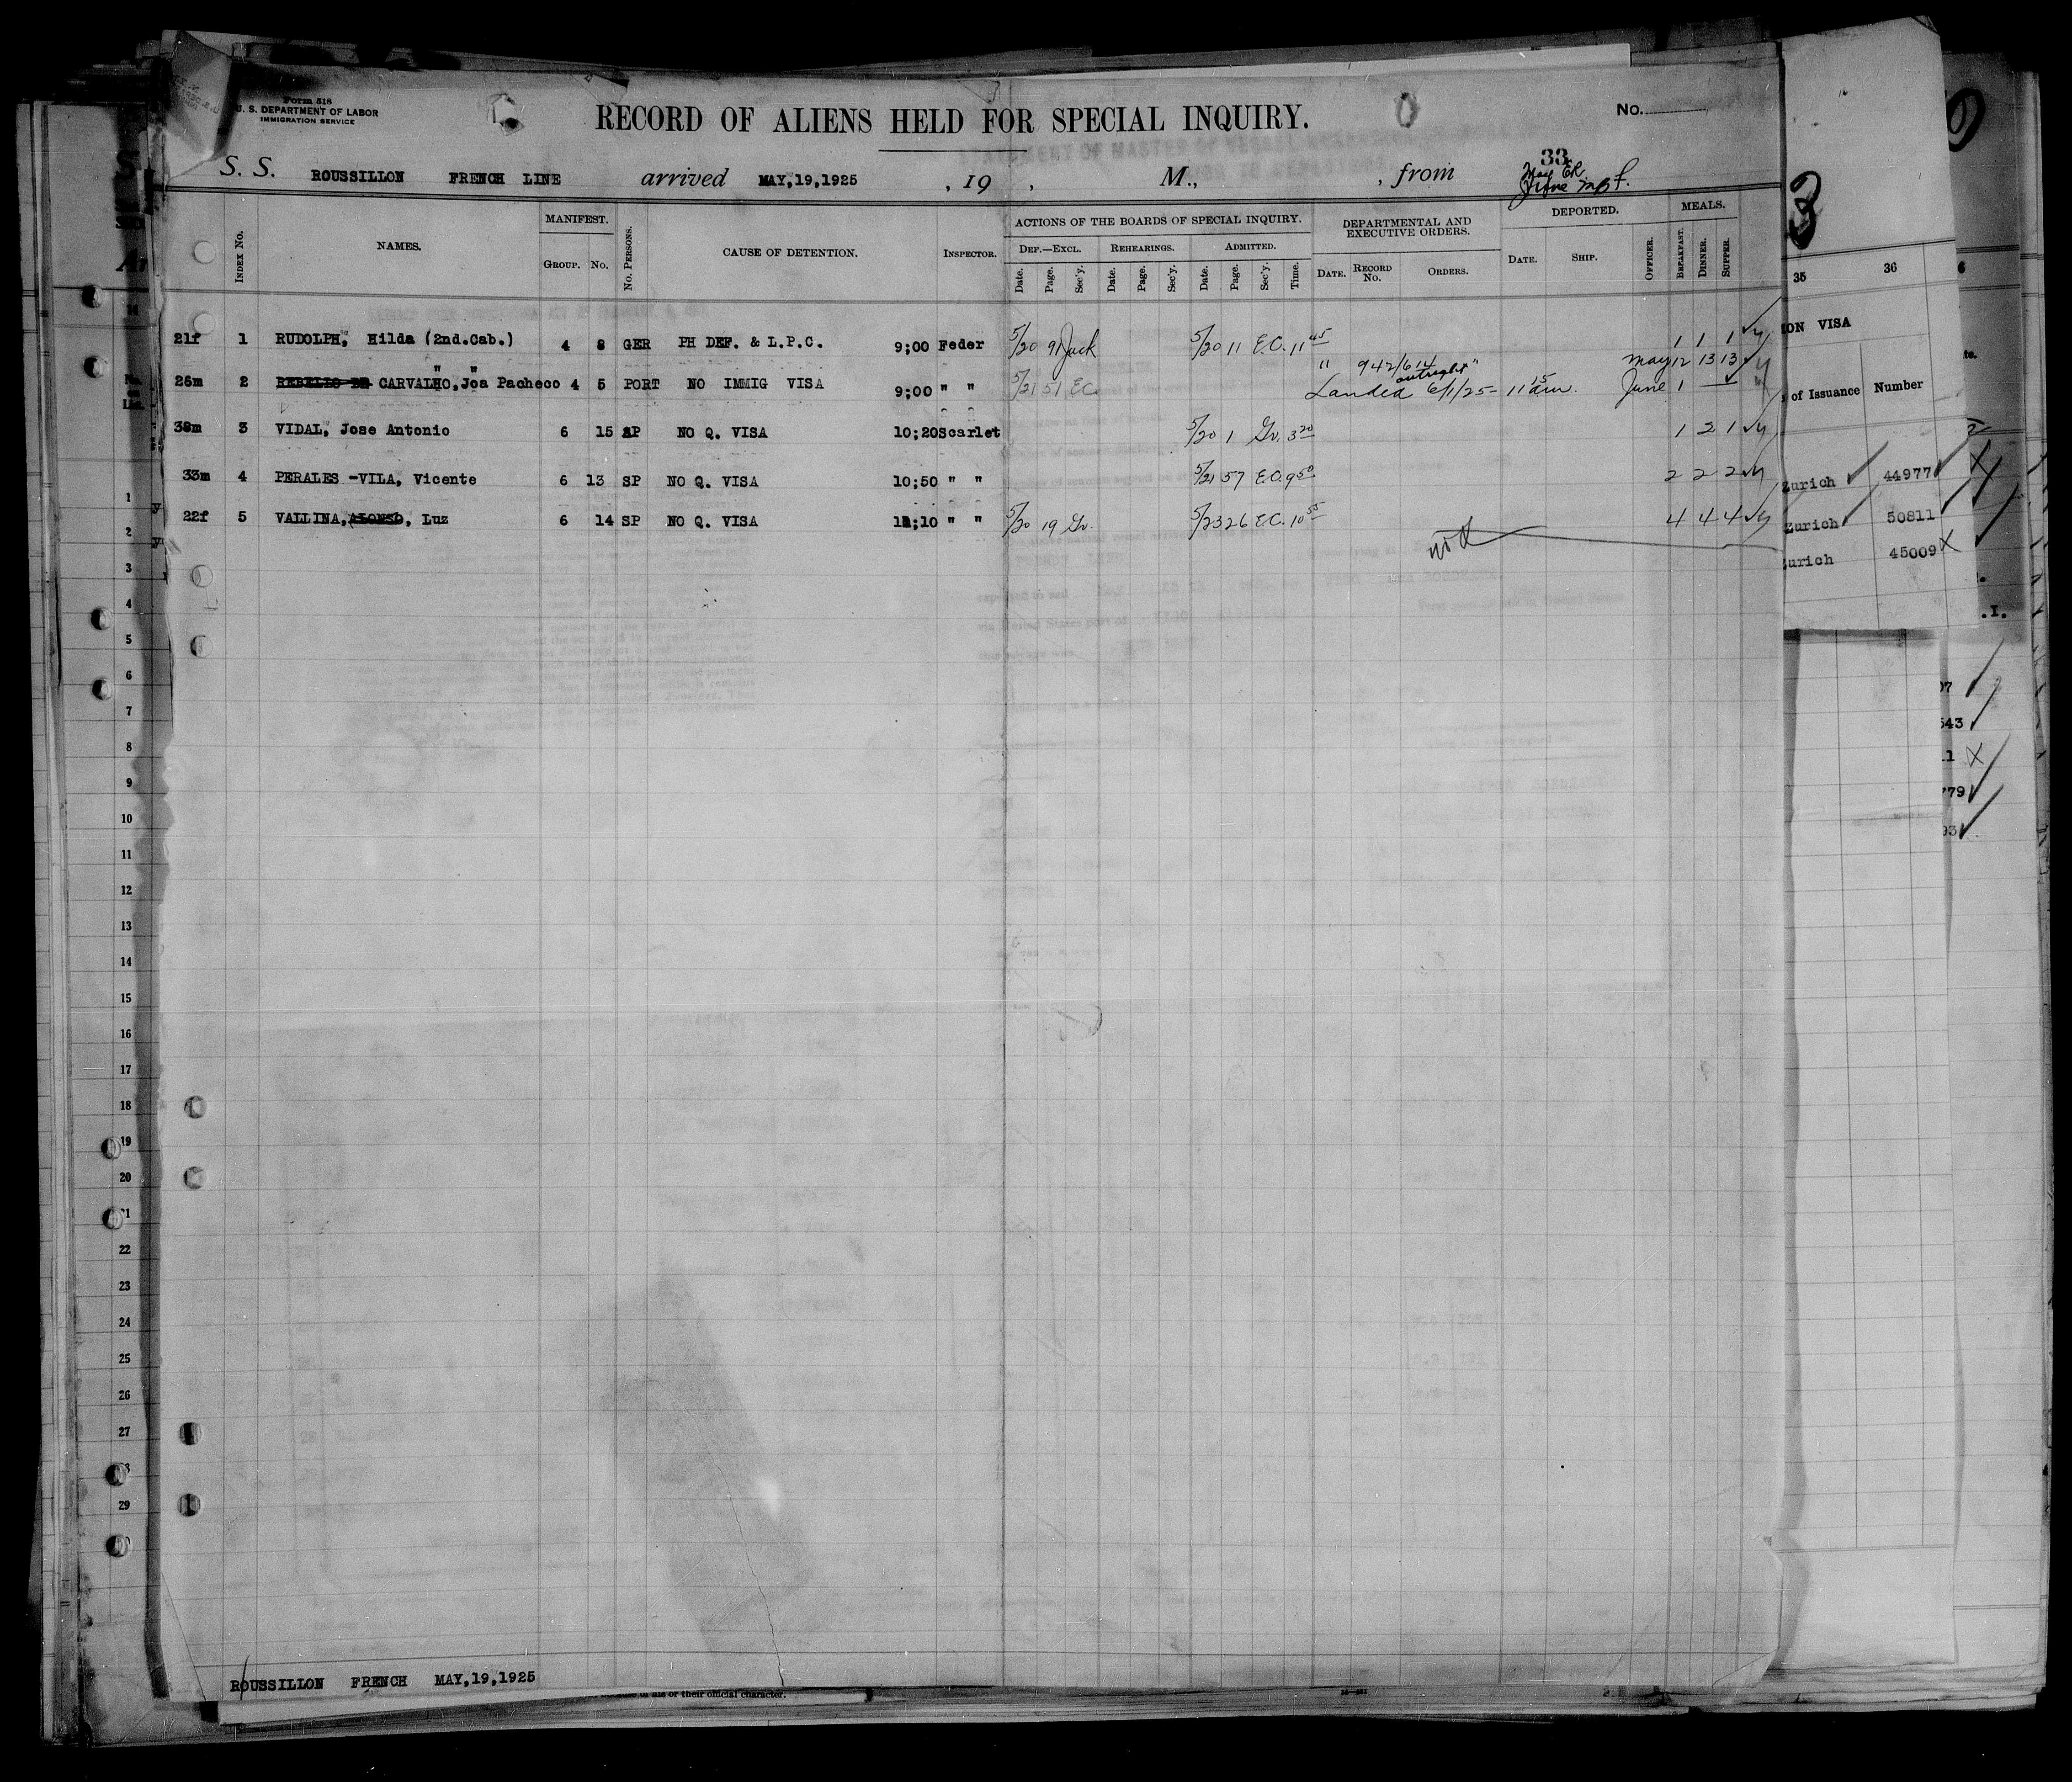 Form 518
U. S. DEPARTMENT OF LABOR
IMMIGRATION SERVICE
RECORD OF ALIENS HELD FOR SPECIAL INQUIRY.
No.
33
S. S. ROUSSILLON FRENCH LINE arrived MAY,19,1925 , 19 , M., , from
INDEX No. NAMES. MANIFEST. GROUP. No. No. PERSONS. CAUSE OF DETENTION. INSPECTOR. ACTIONS OF THE BOARDS OF SPECIAL INQUIRY. DEF.—EXCL. Date. Page. Sec'y. REHEARINGS. Date. Page. Sec'y. ADMITTED. Date. Page. Sec'y. Time. DEPARTMENTAL AND EXECUTIVE ORDERS. DATE. RECORD No. ORDERS. DEPORTED. DATE. SHIP. OFFICER. MEALS. BREAKFAST. DINNER. SUPPER.
21f 1 RUDOLPH, Hilda (2nd.Cab.) 4 8 GER PH DEF. & L.P.C. 9;00 Feder 5/20 91 Jack 5/20 11 E.C. 11 45 1 1 1
" 942/614 outright" May 12 13 13
26m 2 CARVALHO, Joa Pacheco 4 5 PORT NO IMMIG VISA 9;00 " " 5/21 51 EC Landed 6/1/25- 11 15 am. June 1
38m 3 VIDAL, Jose Antonio 6 15 SP NO Q. VISA 10;20 Scarlet 5/20 1 Gr. 3 20 1 2 1
33m 4 PERALES -VILA, Vicente 6 13 SP NO Q. VISA 10;50 " " 5/21 57 E.C. 9 50 2 2 2
22f 5 VALLINA, ALONSO, Luz 6 14 SP NO Q. VISA 11;10 " " 5/20 19 Gr. 5/23 26 E.C. 10 55 4 4 4
ROUSSILLON FRENCH MAY,19,1925
or their official character.
35 36
ION VISA
of Issuance Number
Zurich 44977
Zurich 50811
Zurich 45009
1
2
3
4
5
6
7
8
9
10
11
12
13
14
15
16
17
18
19
20
21
22
23
24
25
26
27
29